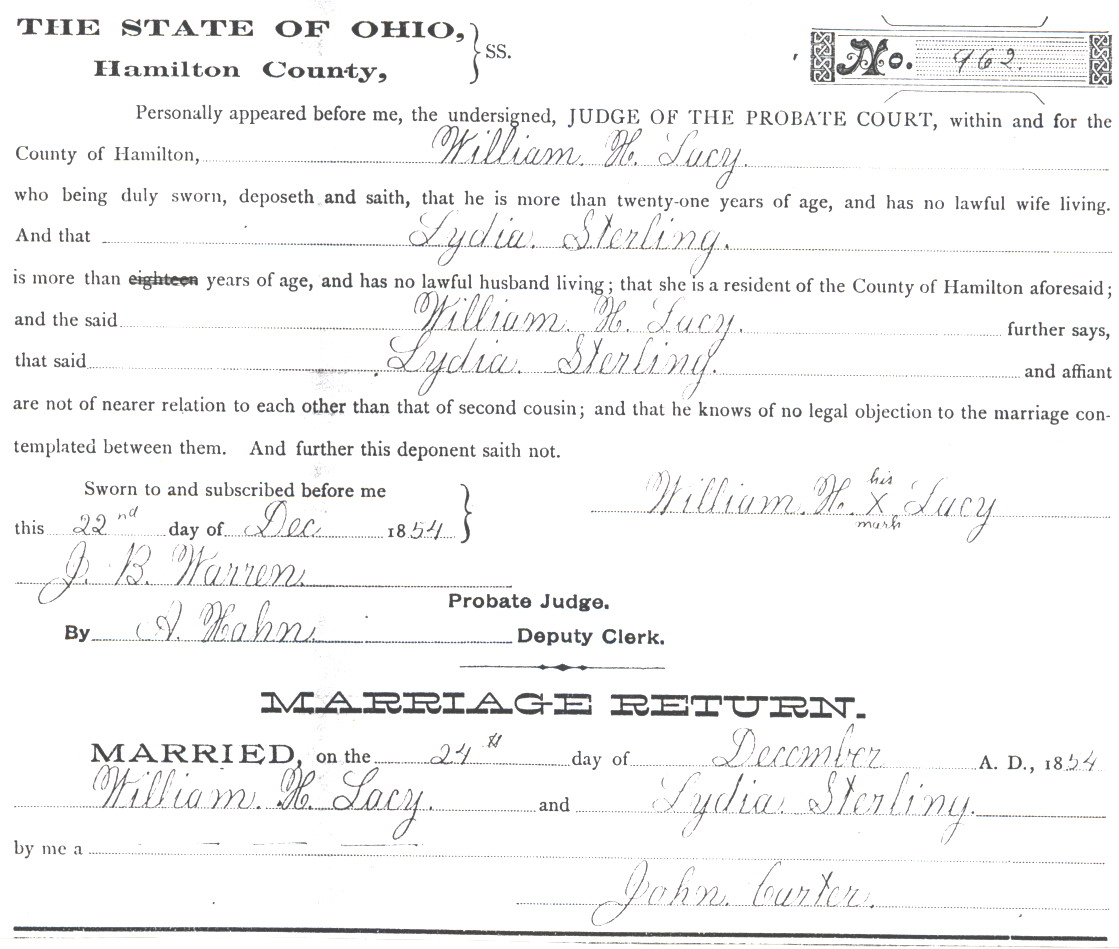 THE STATE OF OHIO, } SS.
Hamilton County,
No. 962.
Personally appeared before me, the undersigned, JUDGE OF THE PROBATE COURT, within and for the
County of Hamilton, William. H. Lacy.
who being duly sworn, deposeth and saith, that he is more than twenty-one years of age, and has no lawful wife living.
And that Lydia. Sterling.
is more than eighteen years of age, and has no lawful husband living; that she is a resident of the County of Hamilton aforesaid;
and the said William. H. Lacy. further says,
that said Lydia. Sterling. and affiant
are not of nearer relation to each other than that of second cousin; and that he knows of no legal objection to the marriage con-
templated between them. And further this deponent saith not.
Sworn to and subscribed before me
this 22nd day of Dec 1854
his
William. H. X Lacy
mark
J. B. Warren.
Probate Judge.
By A. Hahn. Deputy Clerk.
MARRIAGE RETURN.
MARRIED, on the 24th day of December A. D., 1854
William. H. Lacy. and Lydia. Sterling.
by me a
John. Carter.